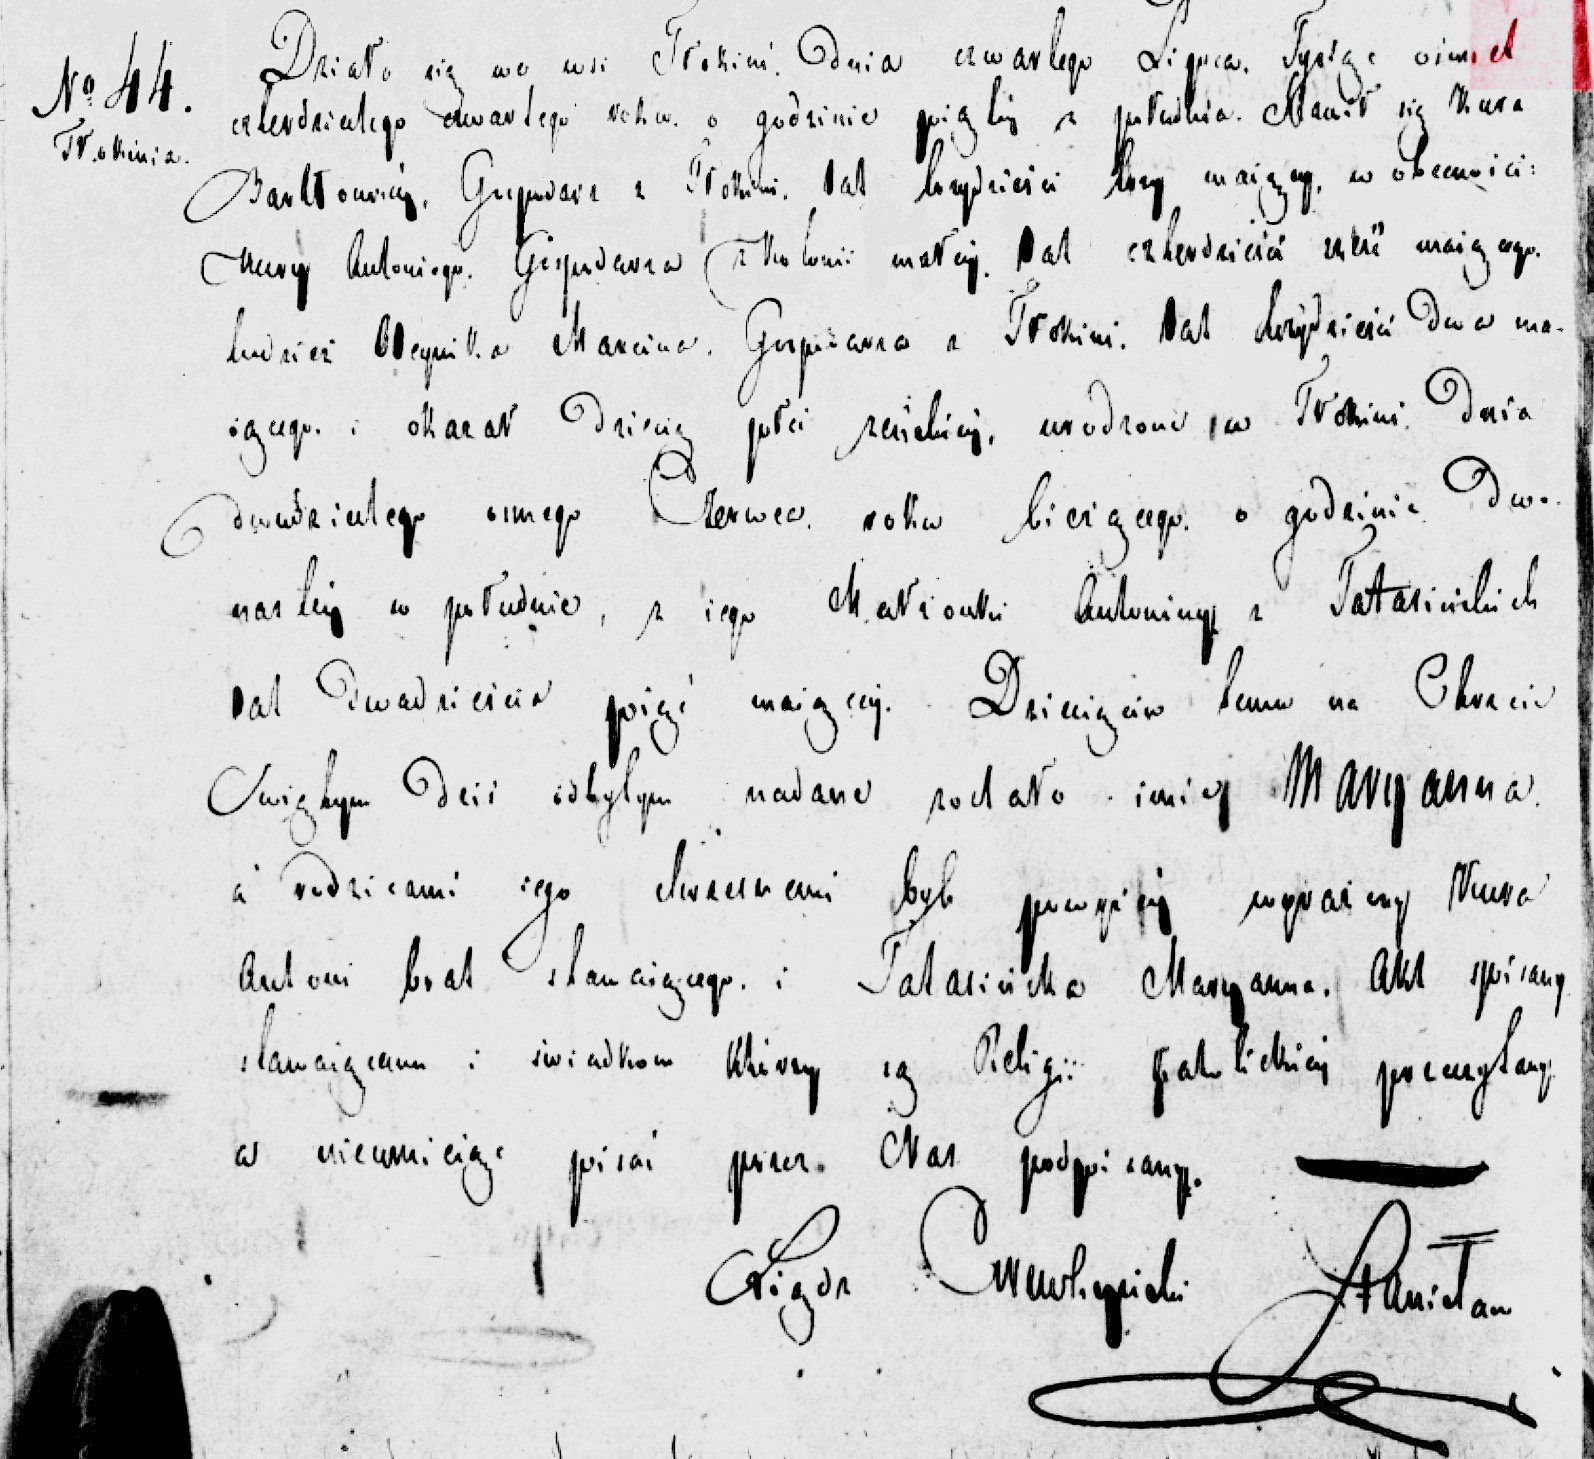 No 44.
Tłokinia.
Działo się we wsi Tłokini. Dnia czwartego Lipca. Tysiąc ośmset
czterdziestego czwartego roku. o godzinie piątey z południa. Stawił się Kura
Bartłomiey, Gospodarz z Tłokini. lat trzydzieści trzy maiący, w obecności:
Kury Antoniego. Gospodarza z Kolonii małey. lat czterdzieści sześć maiącego.
tudzież Marcina. Gospodarza z Tłokini. lat trzydzieści dwa ma-
iącego. i okazał Dziecię płci żeńskiey, urodzone w Tłokini. Dnia
dwudziestego osmego Czerwca. roku bieżącego. o godzinie Dwu-
nastey w południe, z iego Małżonki Antoniny z Tatasińskich
lat dwadzieścia pięć maiącey. Dziecięciu temu na Chrzcie
Swiętym dziś odbytym nadane zostało imie Maryanna.
a rodzicami iego chrzesnemi byli powyżey wyrażony Kura
Antoni brat stawaiącego. i Tatasińska Maryanna. Akt spisany
stawaiącemu i świadkom którzy są Religii Katolickiey przeczytany
a nieumieiąc pisać przez Nas podpisany.
Xiądz Stanisław